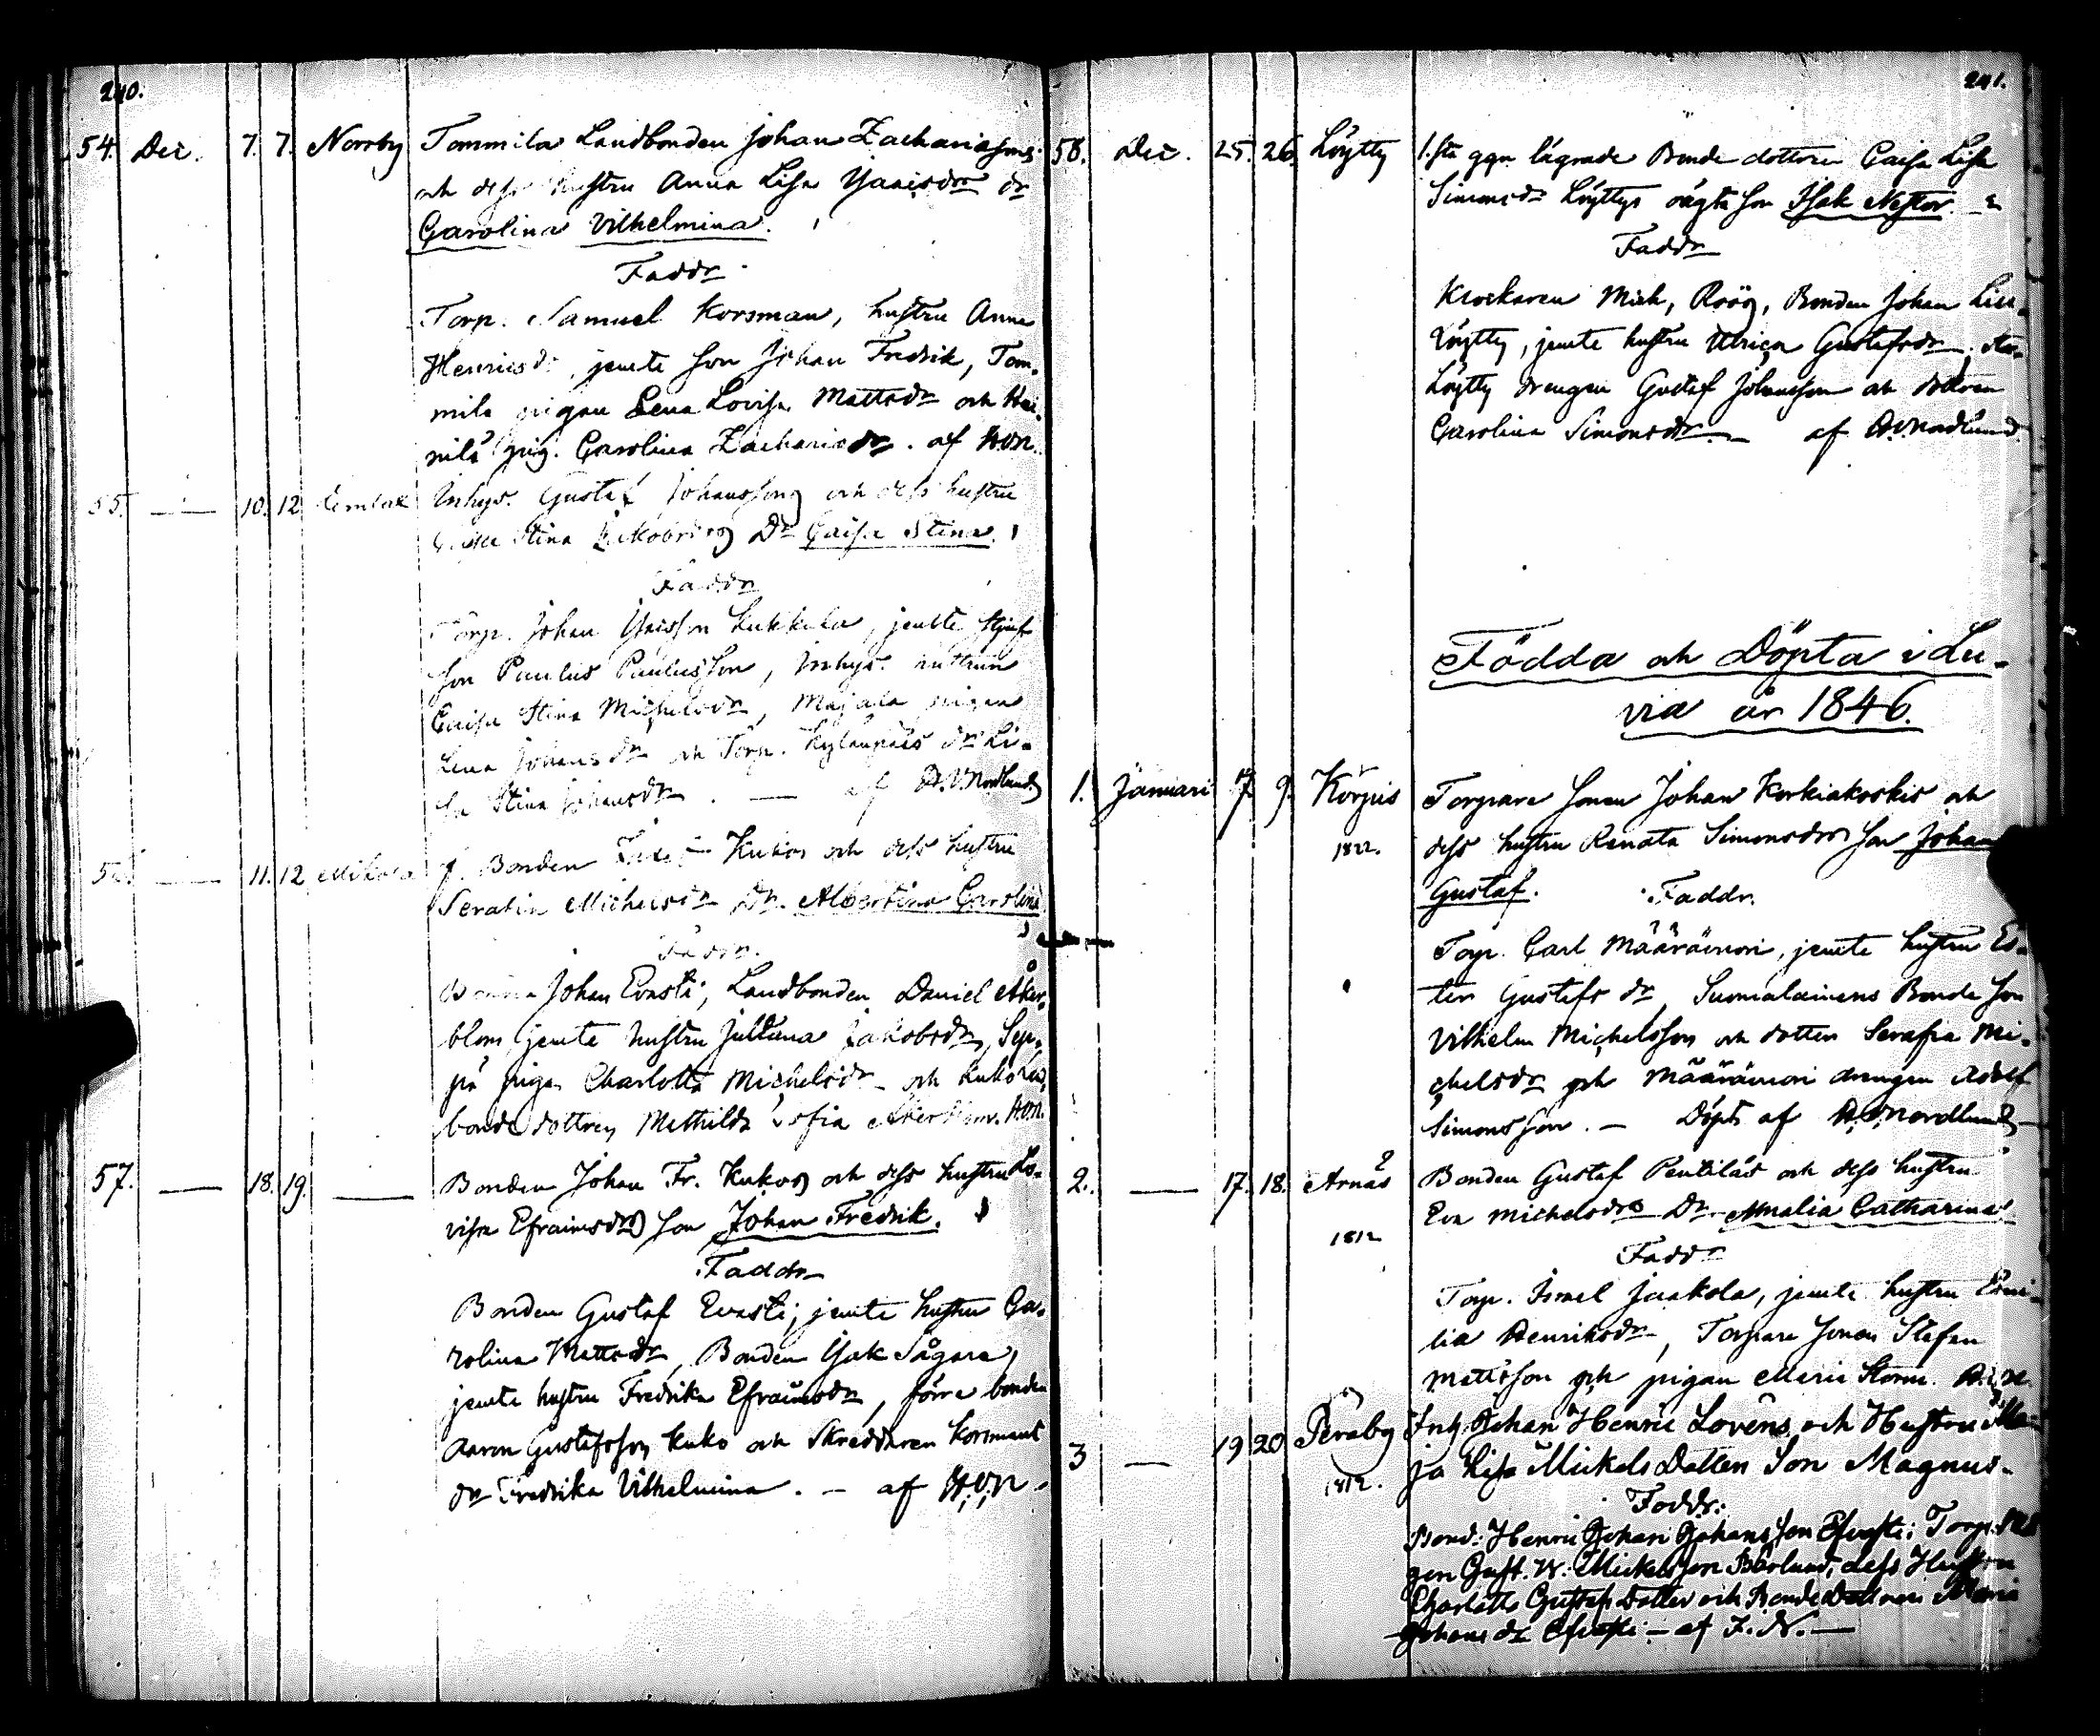 240.
54. Dec. 7. 7. Norrby Tommila Landbonden Johan Zachariasson
och dess hustru Anna Lisa Isaksdr dr
Carolina Vilhelmina.
Faddr
Torp. Samuel Korsman, hustru Anna
Henricsdr, jemte son Johan Fredrik, Tom-
mila pigan Lena Lovisa Mattsdr och Hei-
nilä pig. Carolina Zachariasdr. af H.V.N.
55. — 10. 12 Inhys. Gustaf Johansson och dess hustru
Stina Jakobsdr Dr Caisa Stina.
Faddr
Torp. Johan Isaksson Kukkila, jemte stjuf
son Paulus Paulusson, Inhys. hustrun
Caisa Stina Michelsdr, Majala pigan
Lena Johansdr och Torp. dr Li-
sa Stina Johansdr. — af H.V.Nordlund
— 11. 12 Mikola f. Bonden Kukos och dess hustru
Serafin Michelsdr Dr. Albertina Carolina
Faddr.
Bonden Johan Evasti, Landbonden Daniel Åker-
blom, jemte hustru Juliana Jakobsdr, Sep-
pä pigan Charlotta Michelsdr och Kukola
bonde dottren Mathilda Sofia H.V.N.
57. — 18. 19. — Bonden Johan Fr. Kukos och dess hustru Lo-
visa Efraimsdr son Johan Fredrik.
Faddr
Bonden Gustaf Evasti, jemte hustru Ca-
rolina Mattsdr, Bonden Isak Sågare,
jemte hustru Fredrika Efraimsdr, förre bonden
Aaron Gustafsson Kuko och Skreddaren Korsmans
dr Fredrika Vilhelmina. — af H.V.N.
241.
58. Dec. 25. 26. Löytty 1.sta ggn lägrade Bonde dottren Caisa Lisa
Simonsdr Löyttys oägta son Isak Nestor.
Faddr
Klockaren Mich. Röög, Bonden Johan Lill-
Löytty, jemte hustru Ulrica Gustafsdr,
Löytty drengen Gustaf Johansson och dottren
Carolina Simonsdr — af H.V.Nordlund.
Födda och Döpta i Lu-
via år 1846.
1. Januari 7. 9. Korpis Torpare sonen Johan Korkiakoskis och
1822. dess hustru Renata Simonsdr son Johan
Gustaf. Faddr.
Torp. Carl Määrämori, jemte hustru Es-
ter Gustafsdr, Suomalainens Bonde son
Vilhelm Michelsson och dotter Serafia Mi-
chelsdr och Määrämori drengen Adolf
Simonsson. — Döpt af H.V.Nordlund
2. — 17. 18. Arnäs Bonden Gustaf Pentiläs och dess hustru
1812 Eva Michelsdr Dr Amalia Catharina
Faddr
Torp. Ismel Jaakola, jemte hustru Emi-
lia Henriksdr, Torpare sonen Stefan
Mattsson och pigan Maria Storm. H.V.N.
3 — 19 20 Peräby Inh. Johan Henric Lovéns och Hustru Ma-
1812. ja Lisa Mickels Dotters Son Magnus.
Faddr:
Bond: Henric Johan Johansson Efvasti; Torp.
gen Gust. W. Mickelsson Bärlund, dess Hustru
Charlotta Gustafs Dotter och Bonde Dottren Maria
Johans dr Efvasti — af J. N. —